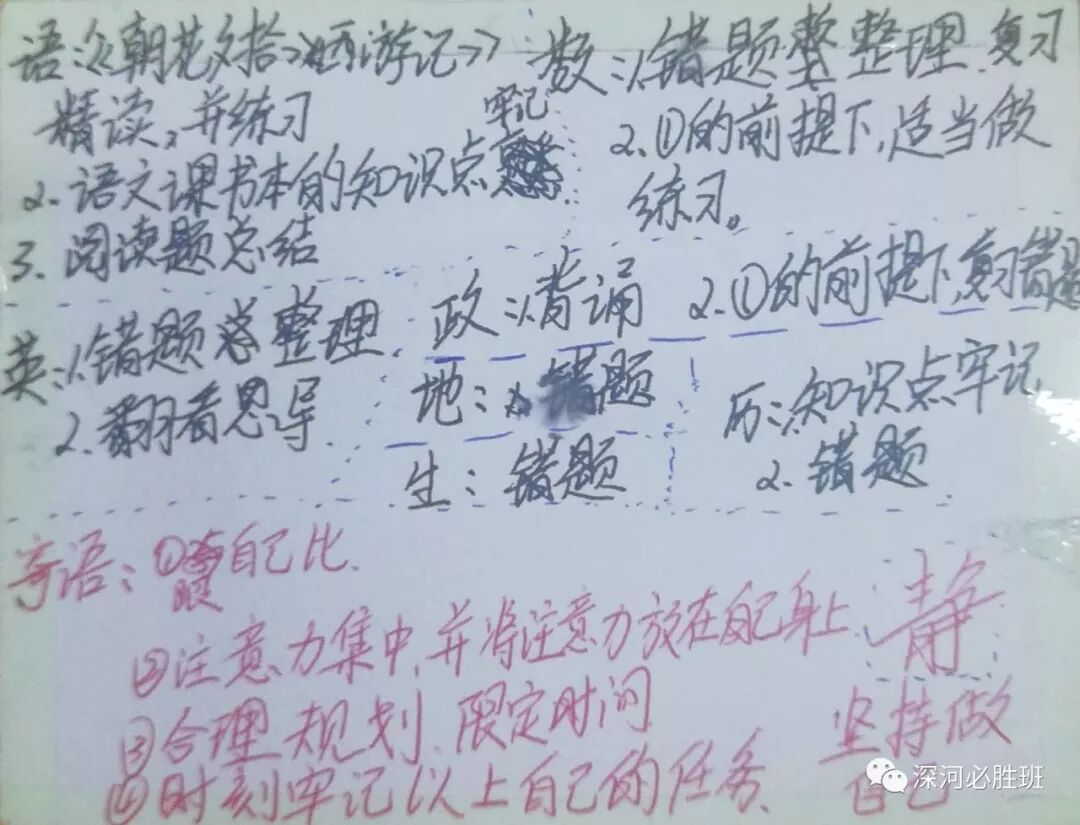 语:1.《朝花夕拾》《西游记》
精读,并练习
2.语文课书本的知识点牢记
3.阅读题总结
数:1.错题整整理.复习
2.①的前提下,适当做
练习。
英:1.错题整理.
2.翻看思导
政:1.背诵 2.①的前提下,复习错题
地:错题
生:错题
历:1.知识点牢记
2.错题
寄语:①跟自己比.
②注意力集中,并将注意力放在自己身上.
③合理规划.限定时间
④时刻牢记以上自己的任务.
静
坚持做
自己
深河必胜班